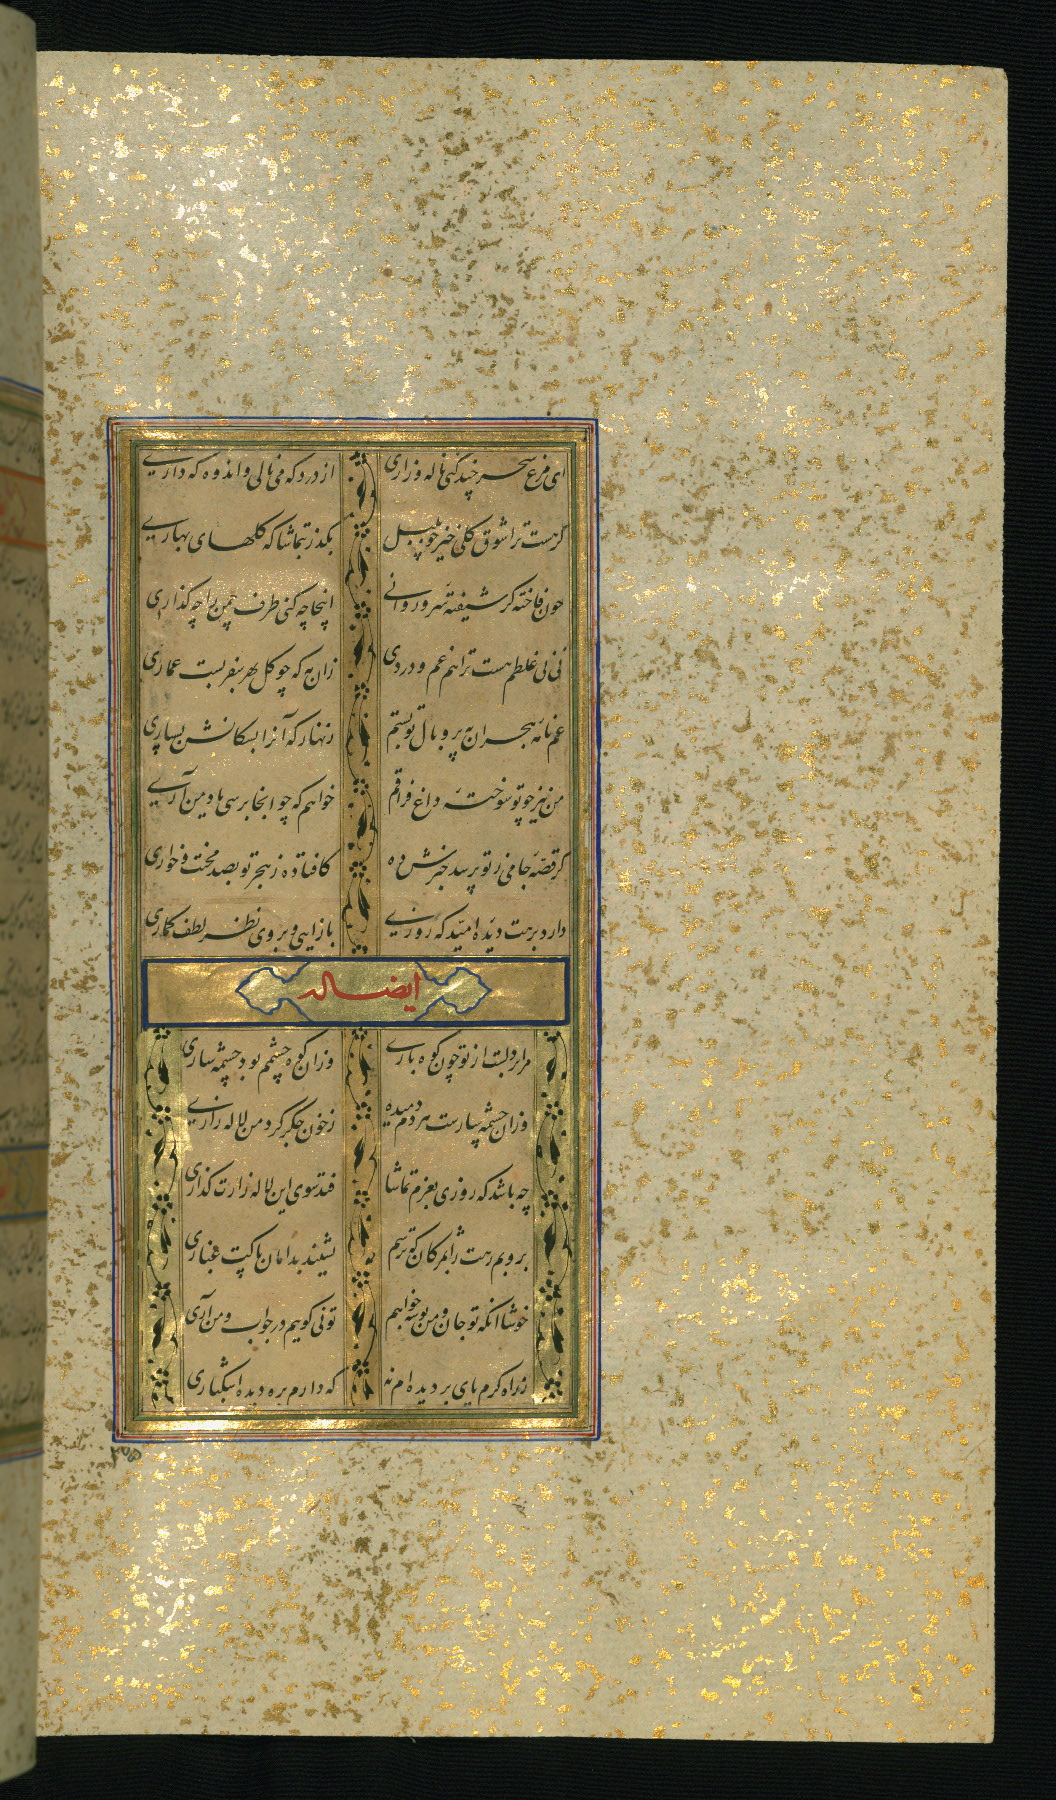 ای مرغ سحر چند کنی ناله و زاری از درد که می نالی و اندوه که داری
گر هست ترا شوق گلی خیز چو بلبل بگذر بتماشا که گلهای بهاری
چون فاخته گر شیفتهٔ سرو روانی اینجا چه کنی طرف چمن را چه گذاری
نی نی غلطم هست ترا هم غم و دردی زان مه که چو گل بهر سفر بست عماری
غم نامهٔ هجران به پر و بال تو بستم زنهار که آنرا بسکانش بسپاری
من نیز چو تو سوختهٔ داغ فراقم خواهم که چو آنجا برسی یاد من آری
گر قصهٔ جامی ز تو پرسد خبرش ده کافتاده ز هجر تو بصد محنت و خواری
دارد برهت دیده امید که روزی بازآیی و بر وی نظر لطف گماری
ایضا له
مرا بر دلست از تو چون کوه باری وزان کوه چشمم بود چشمه ساری
وزان چشمه سارست هر دم دمیده ز خون جگر گرد من لاله زاری
چه باشد که روزی بعزم تماشا فتد سوی این لاله زارت گذاری
بروبم رهت را بمژگان که ترسم نشیند بدامان پاکت غباری
خوشا آنکه تو جان و من بوسه خواهم تو نی گویی در جواب و من آری
ز راه کرم پای بر دیده ام نه که دارم بره دیده اشکباری